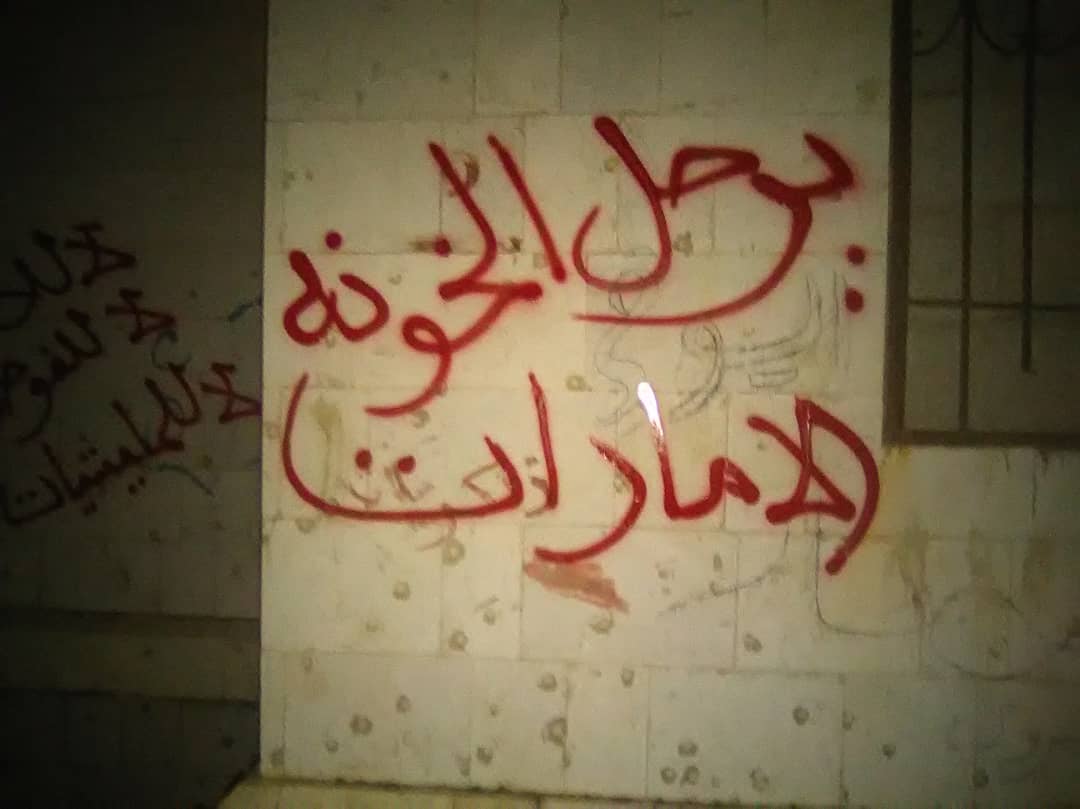 يرحل الخونه
الامارات
لا
لا
لا للمليشيات